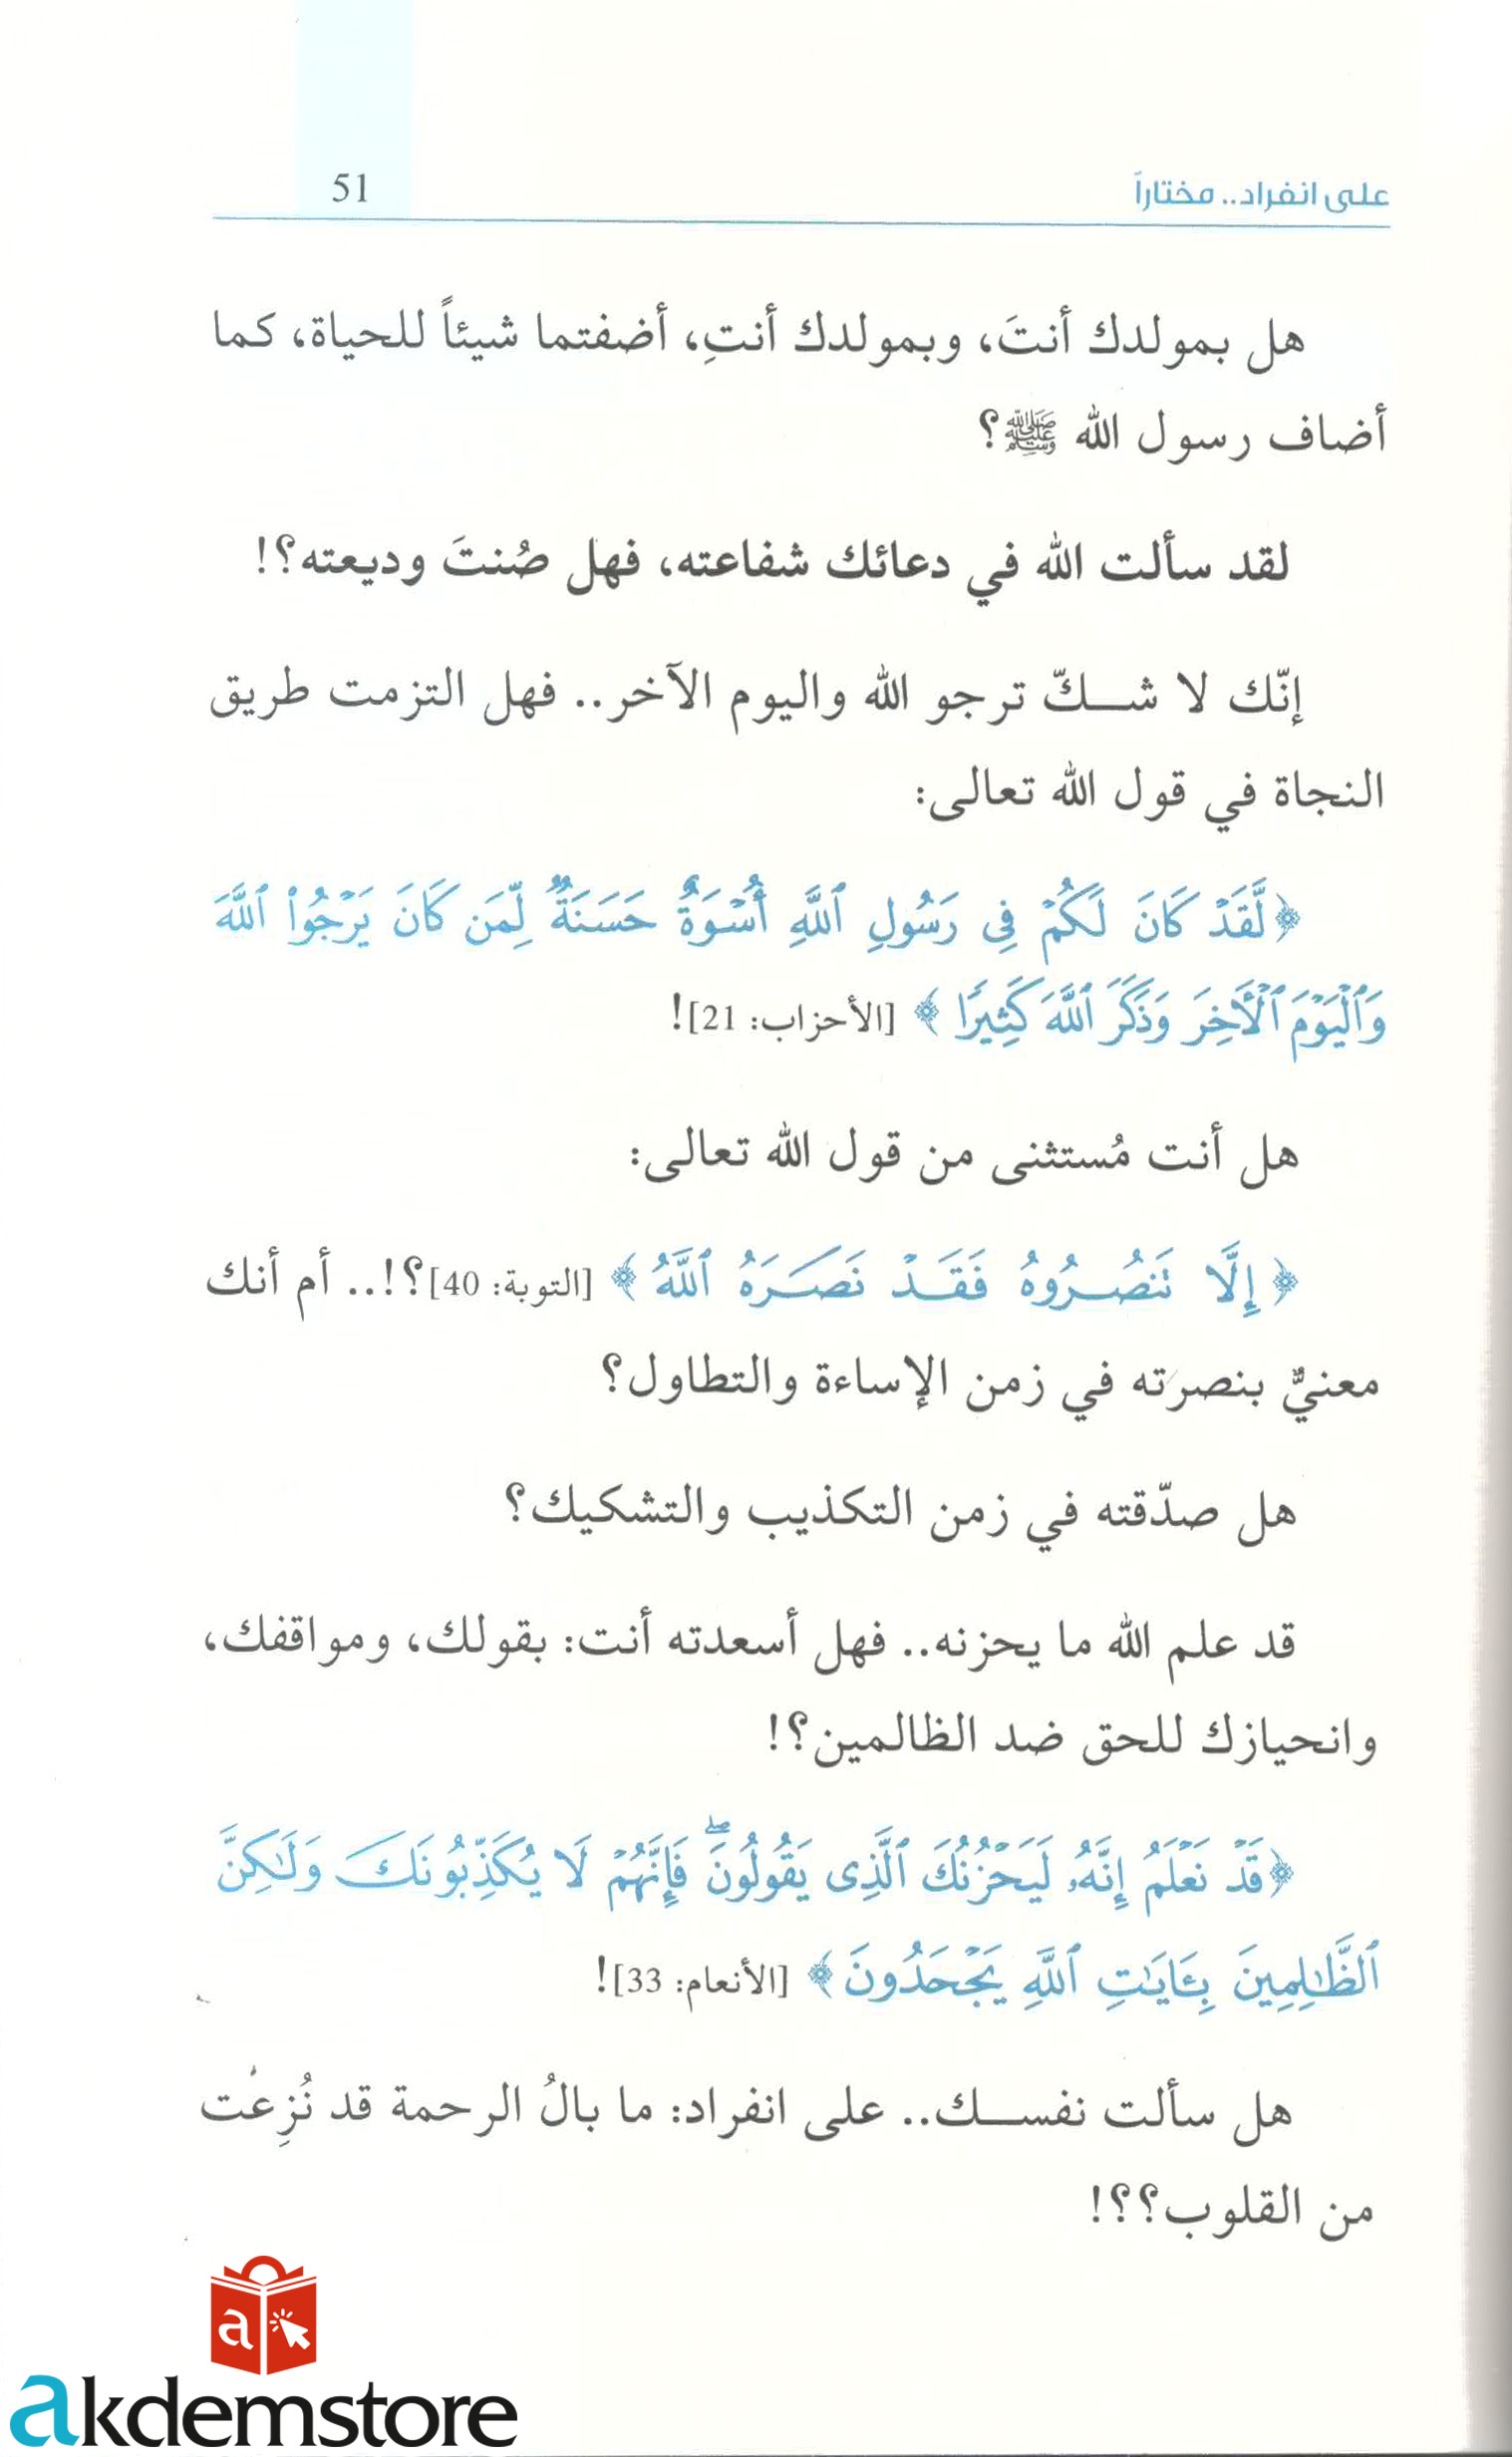 على انفراد.. مختاراً
51
هل بمولدك أنتَ، وبمولدك أنتِ، أضفتما شيئاً للحياة، كما
أضاف رسول الله ﷺ؟
لقد سألت الله في دعائك شفاعته، فهل صُنتَ وديعته؟!
إنّك لا شـــكّ ترجو الله واليوم الآخر.. فهل التزمت طريق
النجاة في قول الله تعالى:
﴿لَّقَدْ كَانَ لَكُمْ فِى رَسُولِ ٱللَّهِ أُسْوَةٌ حَسَنَةٌ لِّمَن كَانَ يَرْجُوا۟ ٱللَّهَ
وَٱلْيَوْمَ ٱلْـَٔاخِرَ وَذَكَرَ ٱللَّهَ كَثِيرًا ﴾ [الأحزاب: 21]!
هل أنت مُستثنى من قول الله تعالى:
﴿ إِلَّا تَنصُـرُوهُ فَقَـدْ نَصَـرَهُ ٱللَّهُ ﴾ [التوبة: 40]؟!.. أم أنك
معنيٌّ بنصرته في زمن الإساءة والتطاول؟
هل صدّقته في زمن التكذيب والتشكيك؟
قد علم الله ما يحزنه.. فهل أسعدته أنت: بقولك، ومواقفك،
وانحيازك للحق ضد الظالمين؟!
﴿قَدْ نَعْلَمُ إِنَّهُۥ لَيَحْزُنُكَ ٱلَّذِى يَقُولُونَ ۖ فَإِنَّهُمْ لَا يُكَذِّبُونَكَ وَلَـٰكِنَّ
ٱلظَّـٰلِمِينَ بِـَٔايَـٰتِ ٱللَّهِ يَجْحَدُونَ ﴾ [الأنعام: 33]!
هل سألت نفســـك.. على انفراد: ما بالُ الرحمة قد نُزِعْت
من القلوب؟؟!
a
akdemstore